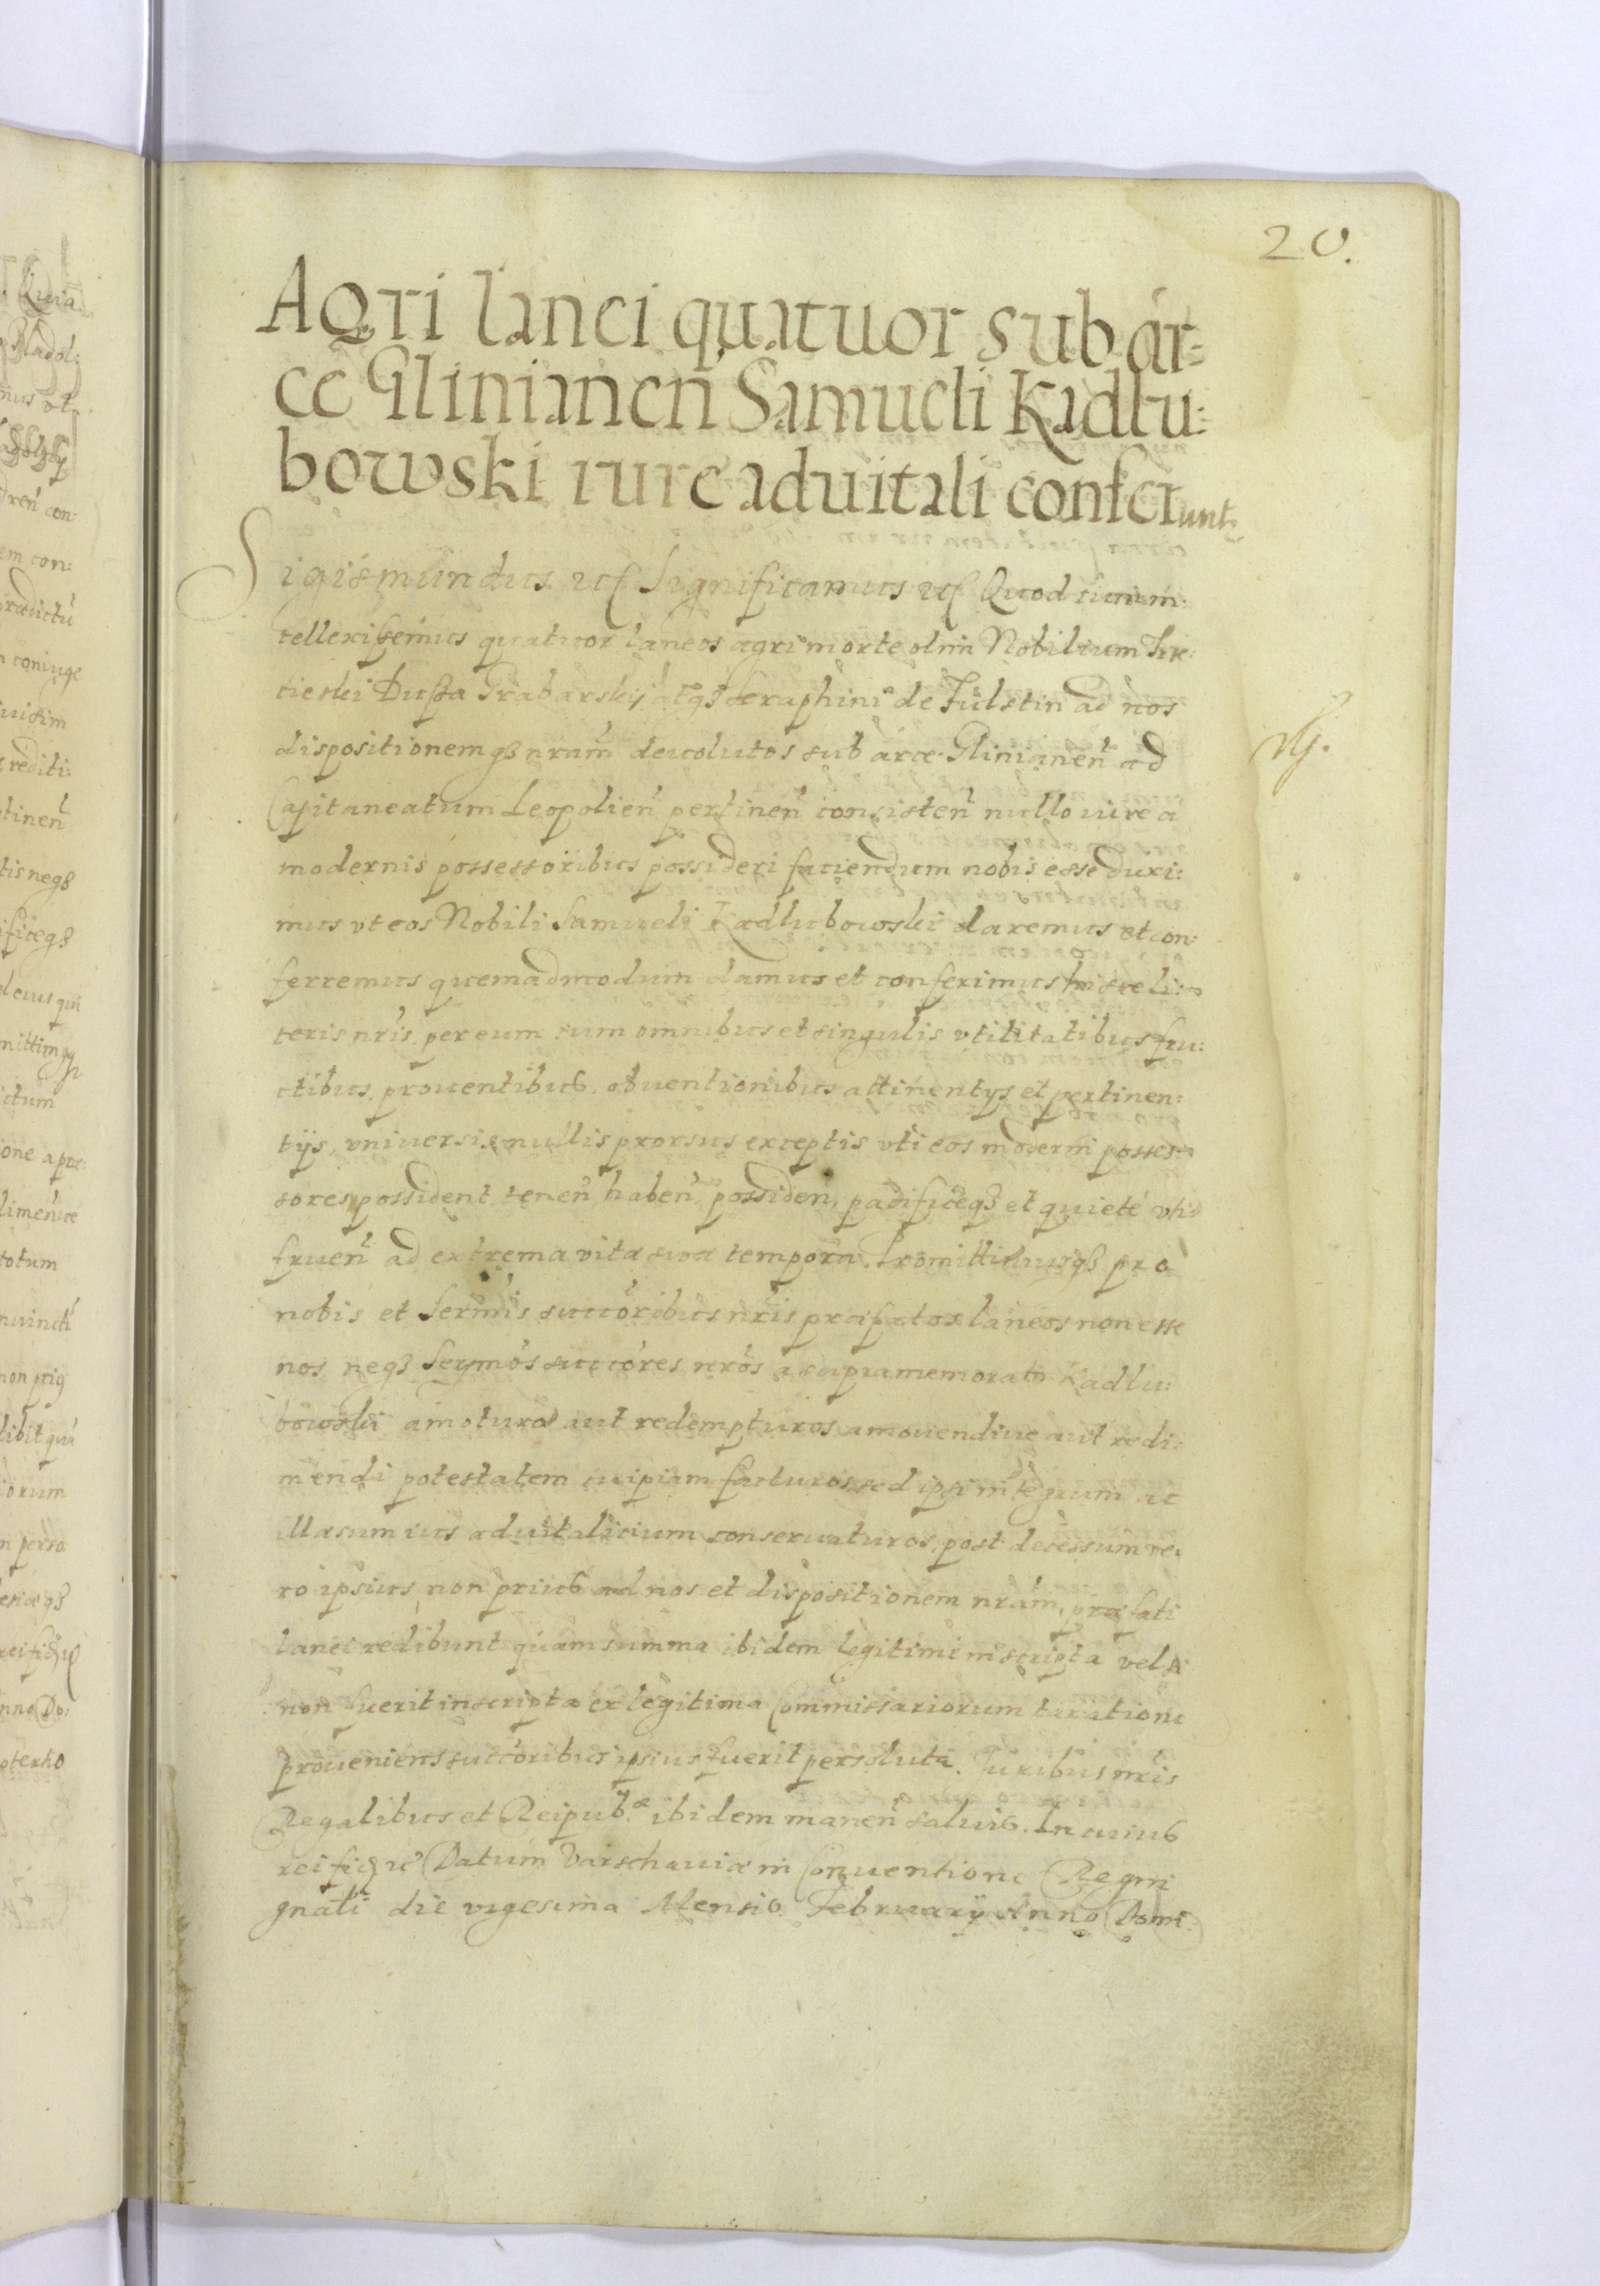 20.
Agri lanei quatuor sub ar=
ce Glinianen̄ Samueli Kadlu:
bowski iure aduitali conferunt
Sigismundus etc Significamus etc Quod cum in:
tellexissemus quatuor laneos agri morte olim Nobilium
cieski Dussa Grabarskij atq3 Seraphini de Fulstin ad nos
dispositionemq3 nram deuolutos sub arce Glinianen̄ ad
Capitaneatum Leopolien̄ pertinen̄ consisten̄ nullo iure a
modernis possessoribus possideri faciendum nobis esse duxi:
mus vt eos Nobili Samueli Kadlubowski daremus et con:
ferremus quemadmodum damus et conferimus hisce li:
teris nris per eum cum omnibus et singulis vtilitatibus fru:
ctibus prouentibus obuentionibus attinentijs et pertinen:
tijs vniuersis nullis prorsus exceptis vti eos moderni posses:
sores possident tenen̄ haben̄ possiden̄ pacificeq3 et quiete vti
fruen̄ ad extrema vitæ suæ tempora. Promittimusq3 pro
nobis et Sermis succoribus nris præfatos laneos non esse
nos neq3 Sermos succores nros a supramemorato Kadlu:
bowski amoturos aut redempturos amouendiue aut redi:
mendi potestatem cuipiam facturos sed ipsi integrum ac
illæsum ius aduitalicium conseruaturos, post decessum ve:
ro ipsius, non prius ad nos et dispositionem nram, præfati
lanei redibunt quam summa ibidem legitime inscripta vel si
non fuerit inscripta ex legitima Commissariorum taxatione
proueniens succoribus ipsius fuerit persoluta. Iuribus nris
Regalibus et Reipubcæ ibidem manen̄ saluis. In cuius
rei fidẽ etc Datum Varschauiæ in Conuentione Regni
gnali die vigesima Mensis February Anno Domi: